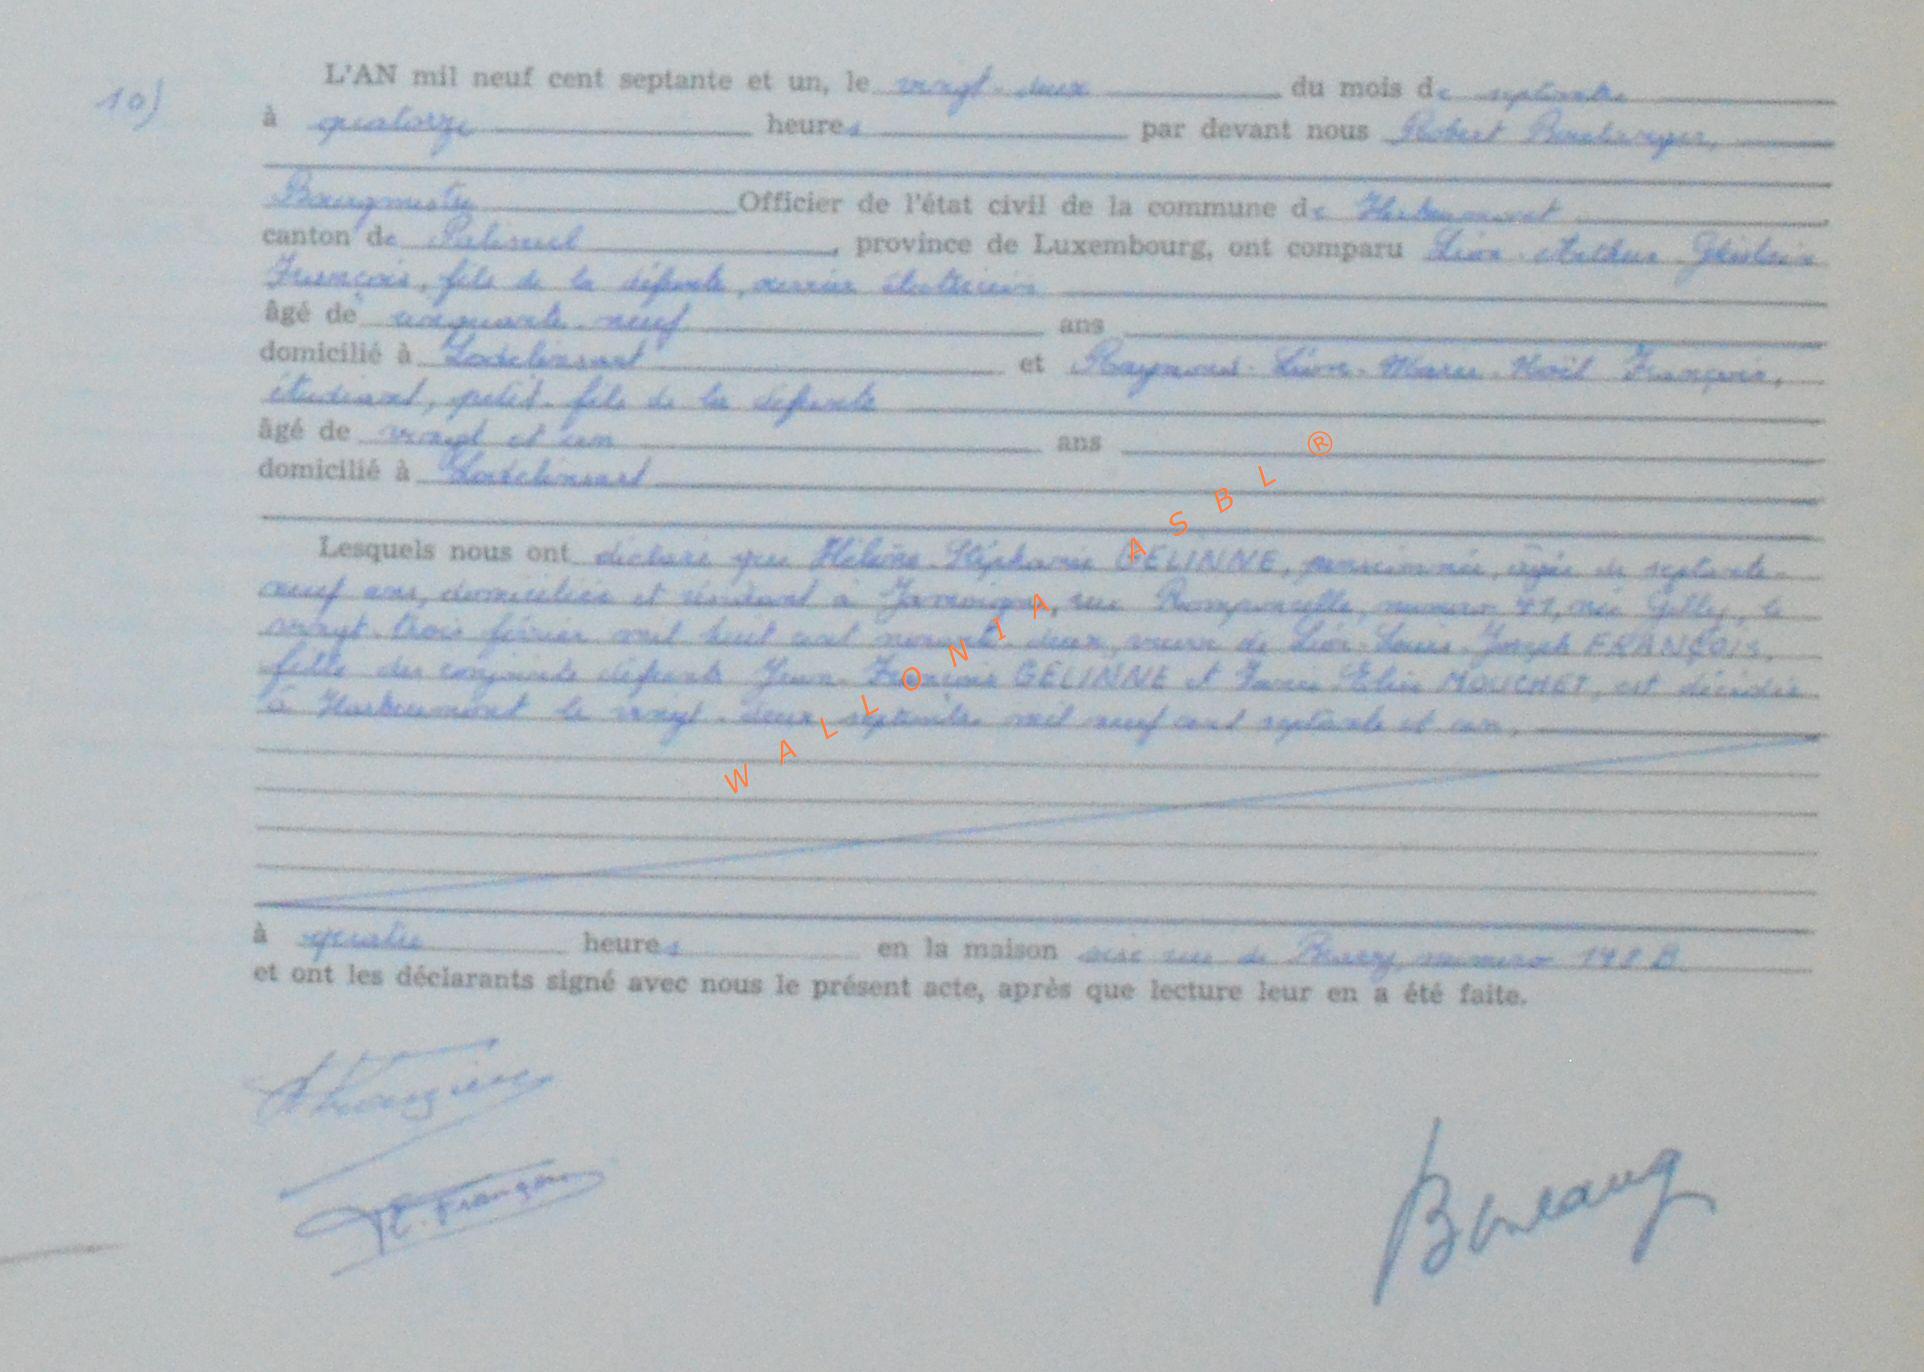 10)
L'AN mil neuf cent septante et un, le vingt-deux du mois de septembre
à quatorze heures par devant nous Robert Boulanger,
Bourgmestre Officier de l'état civil de la commune de Herbeumont
canton de Paliseul, province de Luxembourg, ont comparu Léon-Arthur-Ghislain
François, fils de la défunte, ouvrier électricien
âgé de cinquante-neuf ans
domicilié à Lodelinsart et Raymond-Léon-Marie-Noël François,
étudiant, petit-fils de la défunte
âgé de vingt et un ans
domicilié à Lodelinsart
Lesquels nous ont déclaré que Hélène-Stéphanie GELINNE, pensionnée, âgée de septante-
neuf ans, domiciliée et résidant à Jamoigne, rue numéro 41, née Gilly, le
vingt-trois février mil huit cent nonante-deux, veuve de Léon-Louis-Joseph FRANÇOIS,
fille des conjoints défunts Jean-François GELINNE et Elise MOUCHET, est décédée
à Herbeumont le vingt-deux septembre mil neuf cent septante et un,
à quatre heures en la maison sise rue de numéro B
et ont les déclarants signé avec nous le présent acte, après que lecture leur en a été faite.
François
Boulang
WALLONIA ASBL ®